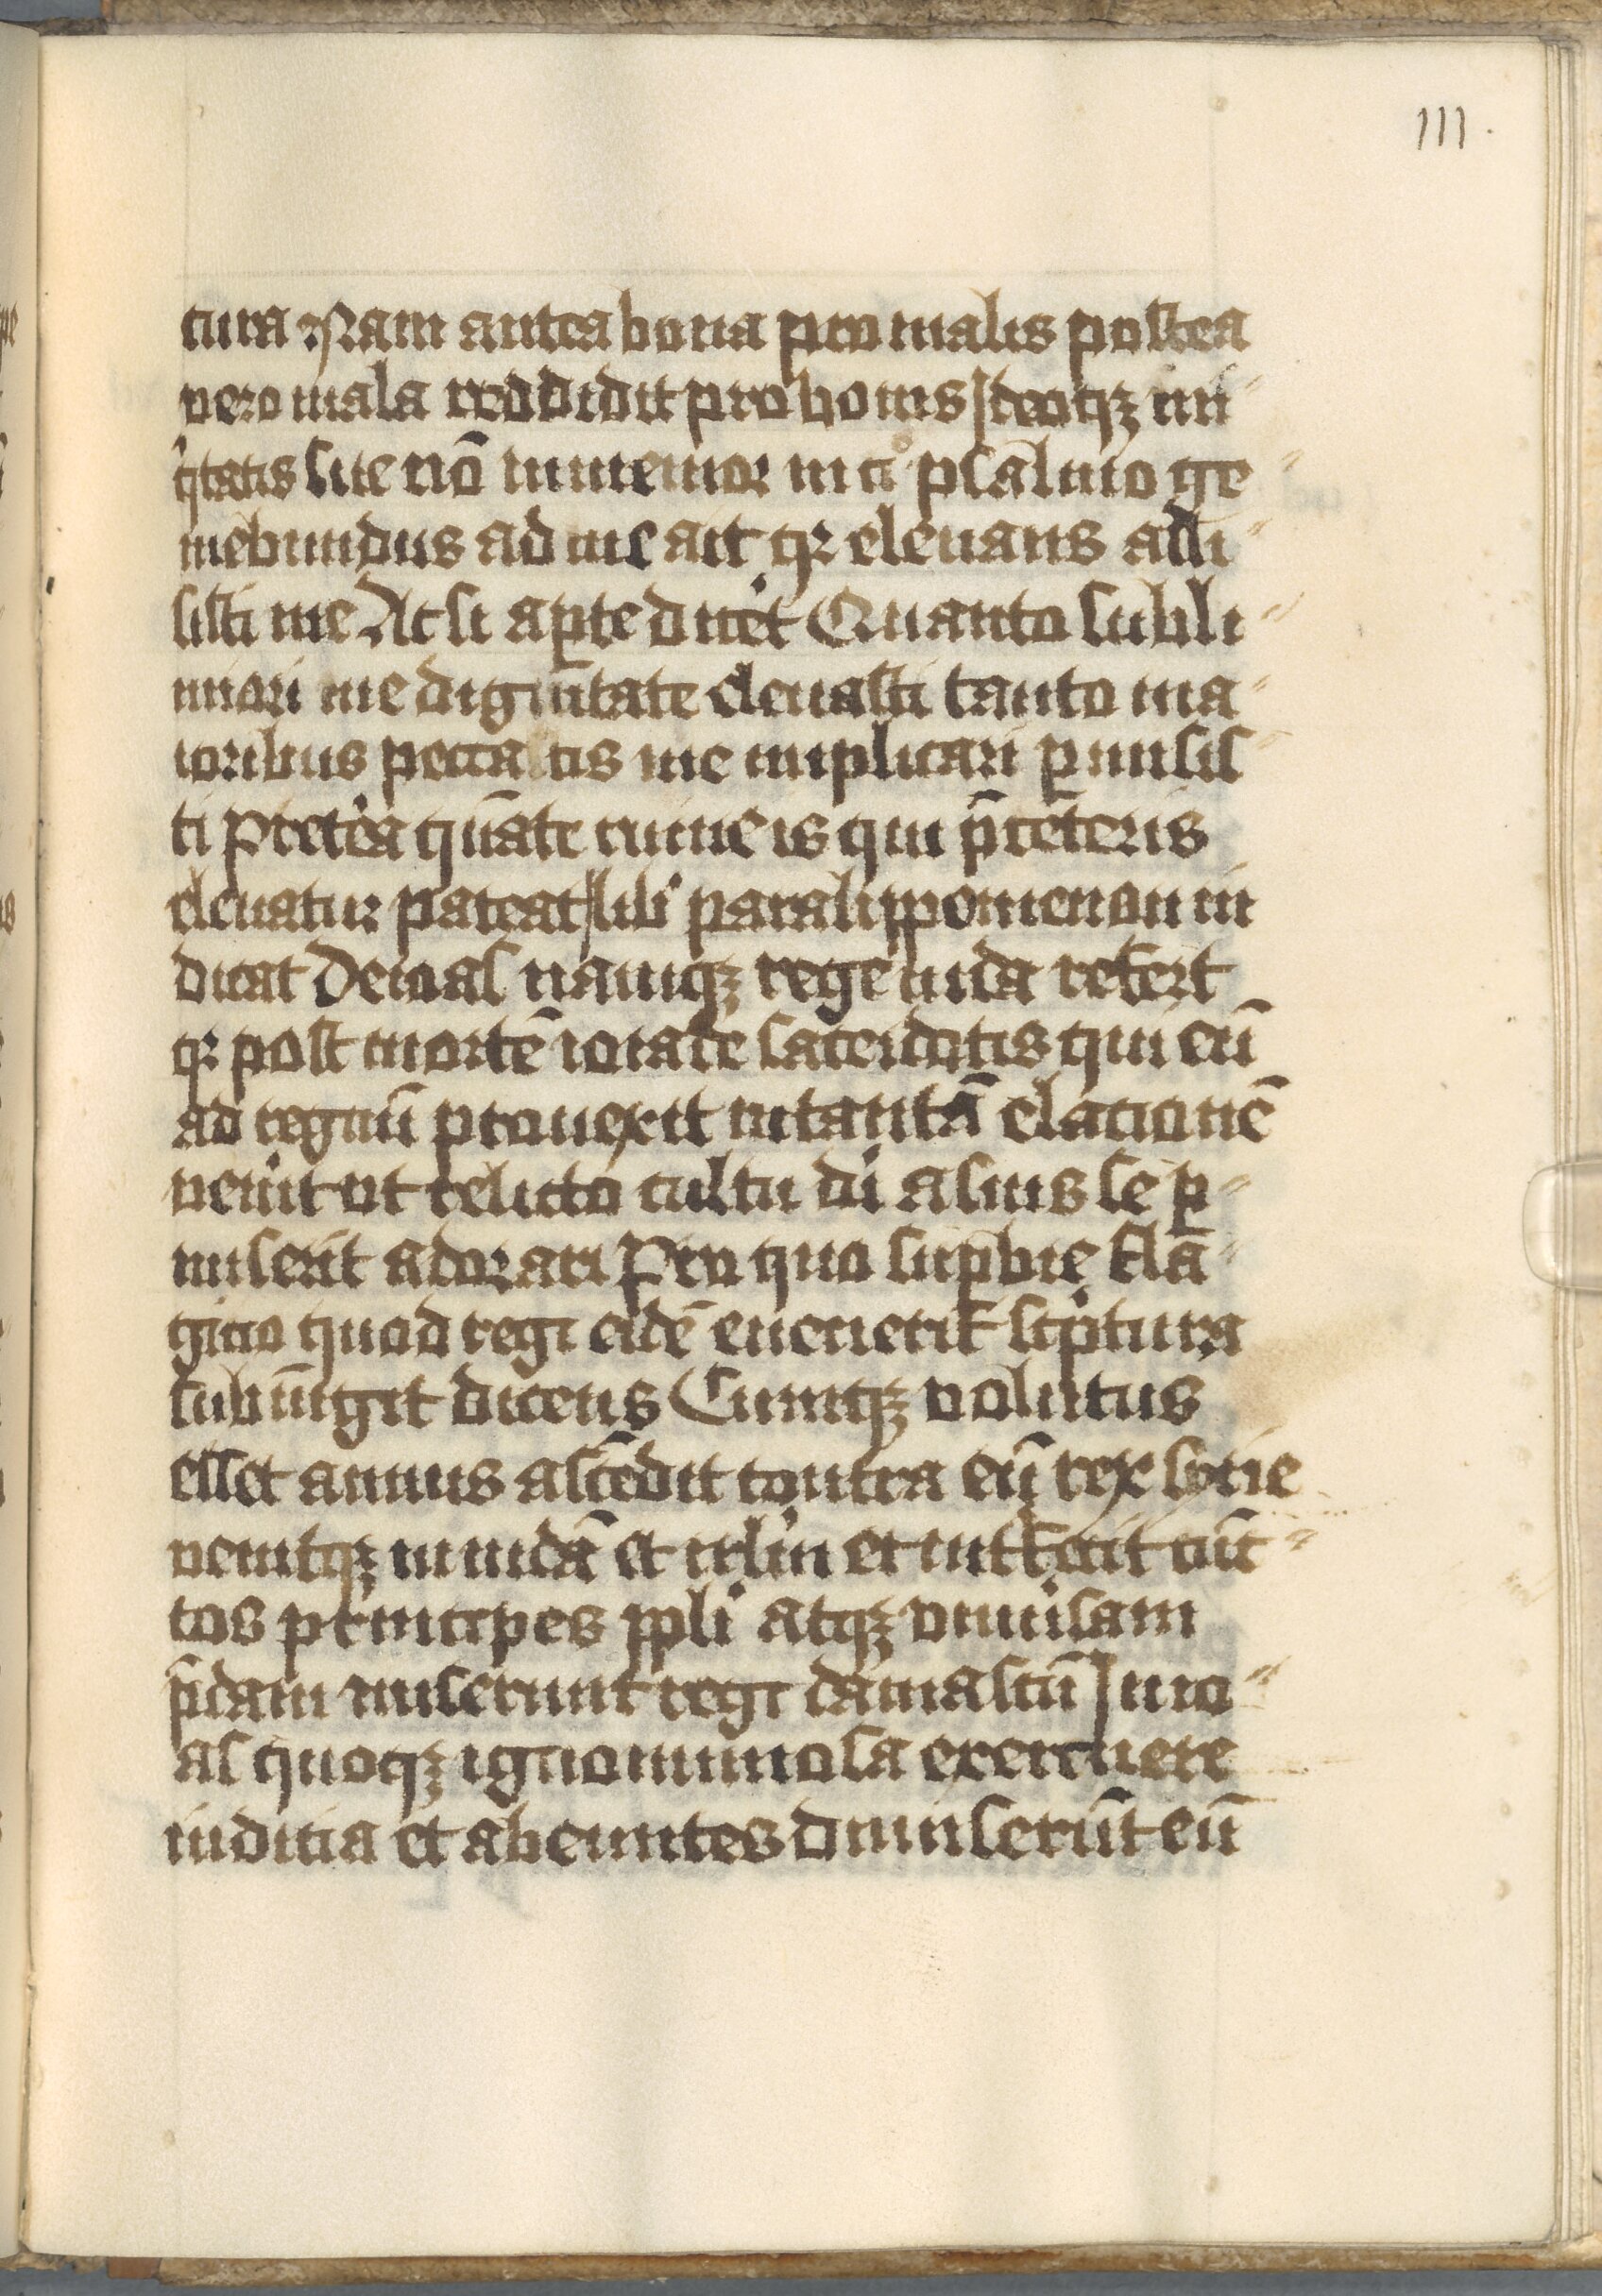 111.
tura Nam antea bona pro malis postea
vero mala reddidit pro bonis Ideoqꝫ ini
qͥtatis sue nō inmemor in ci° psalmo ge
mebundus ad me ait qꝛ elevans alli
sisti me Ac si aꝑte dicͥet Quanto subli
miori me dignitate elevasti tanto ma
ioribus peccatis me implicari ꝑmisis
ti Pretͥea qu̅ate ruine is qui p̄ceteris
elevatur pateat libͥ paralippomenon in
dicat De ioas namqꝫ rege iuda refert
qꝛ post mortē ioiade sacerdotis qui eū
ad regnū provexit in tantā elacionē
venit ut relicto cultu di alivis se ꝑ
miserit adorari Pro quo suꝑbie fla
gicio quod regi eidē evenerit scͥptura
subiūgit dicens Cumqꝫ volutus
esset annus ascēdit contra eū rex sirie
venitqꝫ in iudā et irlm̄ et inꝉfecit cūc
tos principes ppli atqꝫ univͥsam
p̄dam miserunt regi damascū In io
as quoqꝫ ignominiosa exercuere
iudicia et abeuntes dimiserūt eū